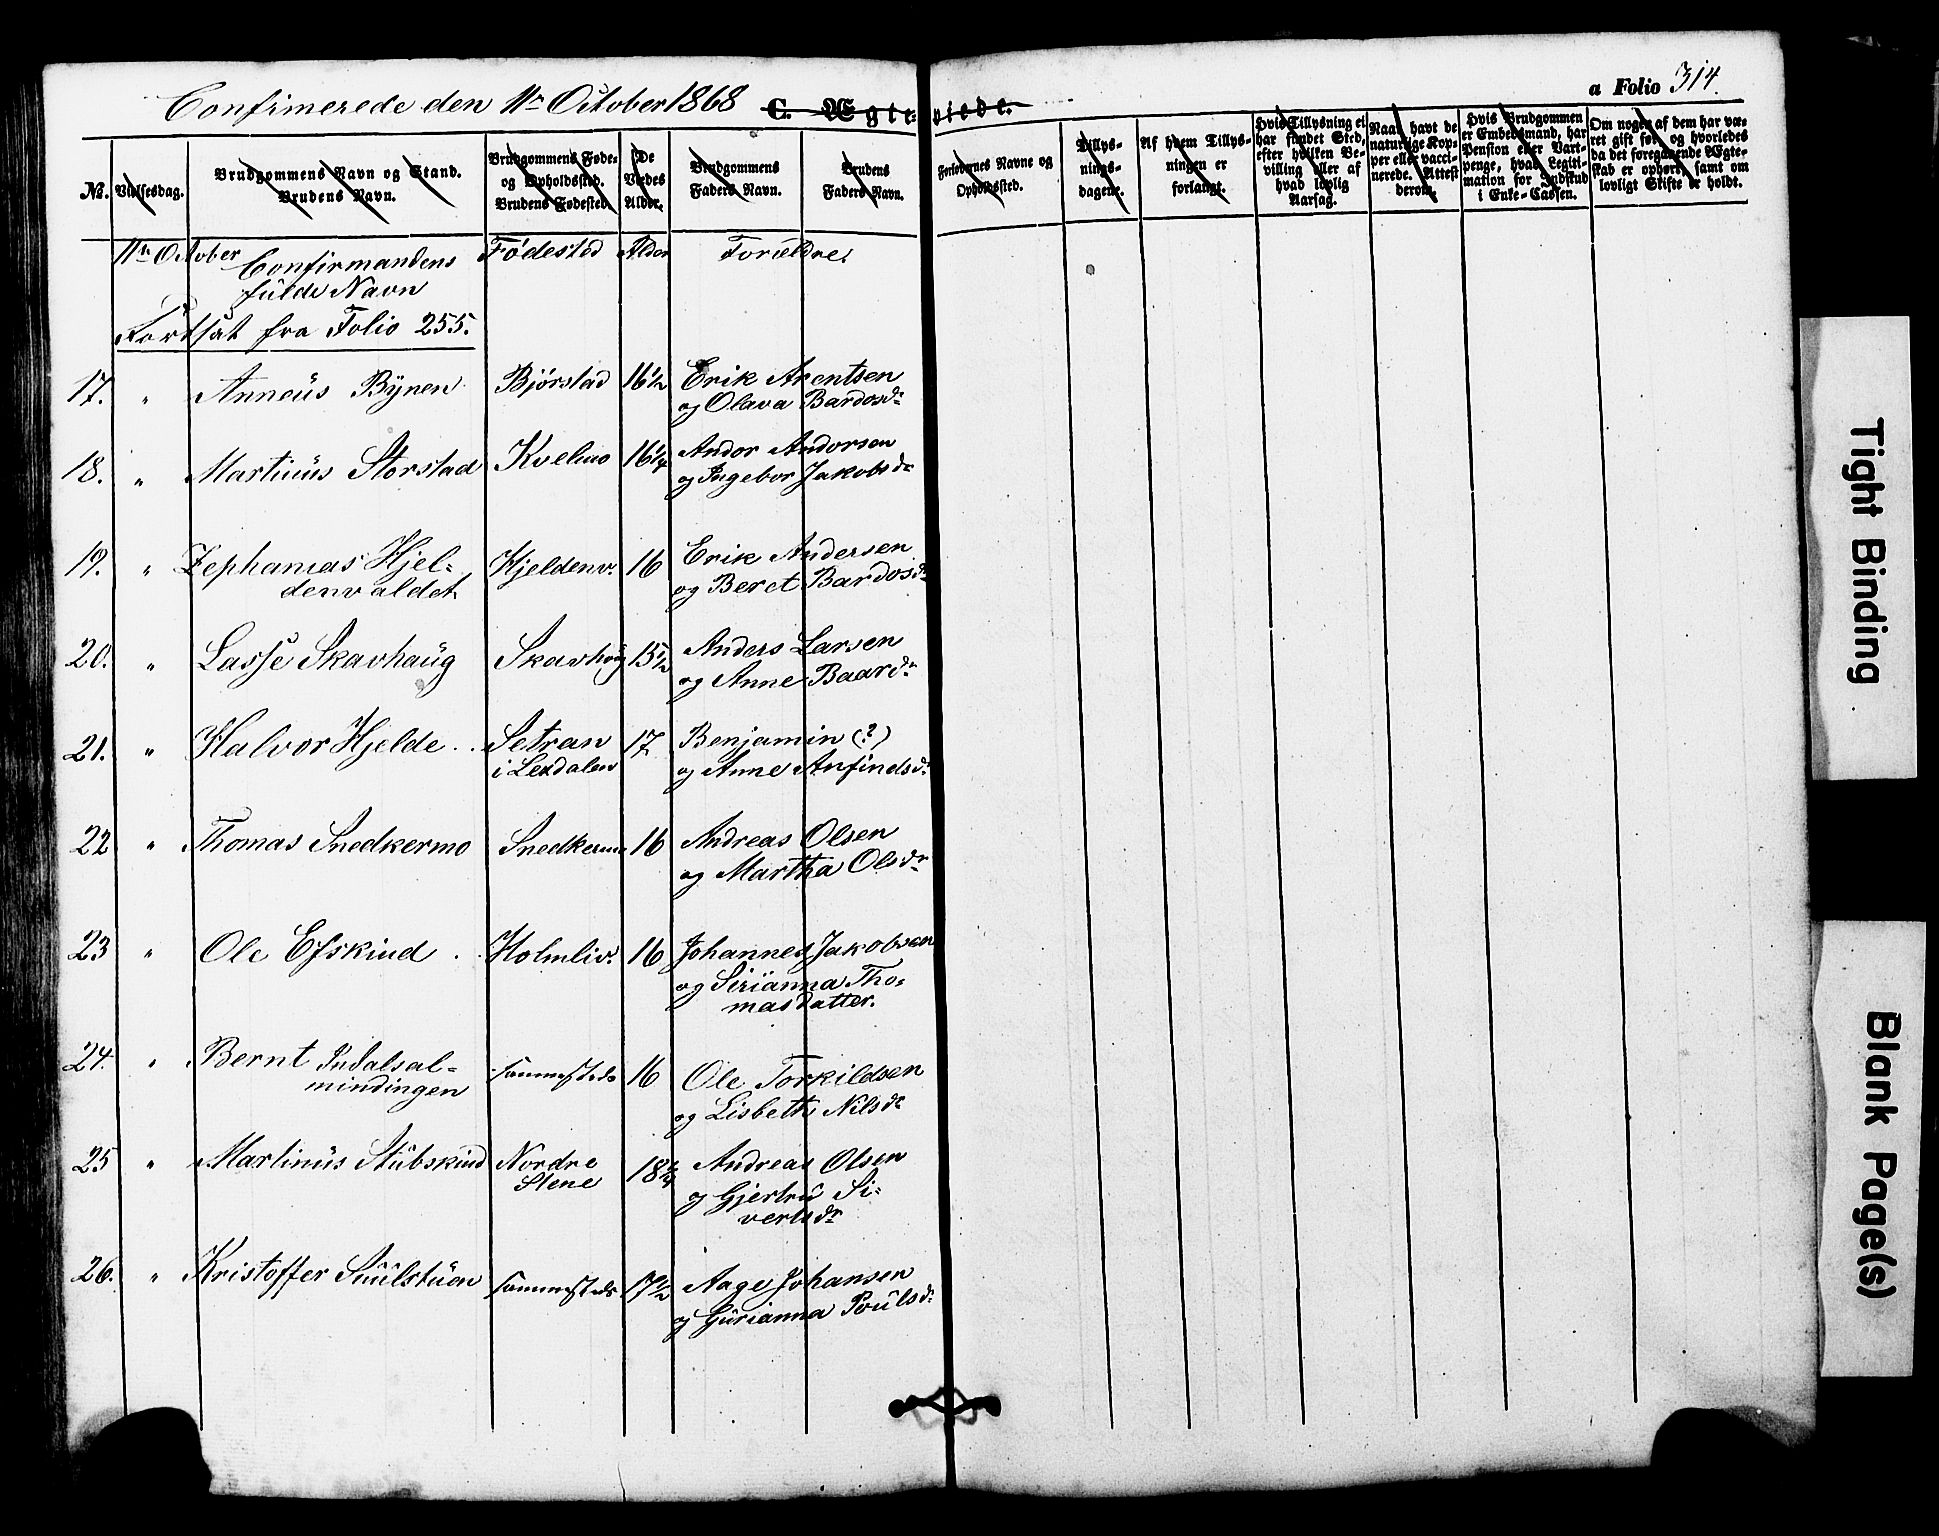 Confirmerede den 11te October 1868 C. Ægtevede.
a Folio 314.
No. Vielsesdag. Brudgommens Navn og Stand. Brudens Navn. Brudgommens Føde- og Opholdssted. Brudens Fødested. De Viedes Alder. Brudgommens Faders Navn. Brudens Faders Navn. Forlovernes Navne og Opholdssted. Tillys- nings- dagene. Af hvem Tillys- ningen er forlangt. Hvis Tillysning ei har fundet Sted, efter hvilken Be- villing eller af hvad lovlig Aarsag. Naar havt de naturlige Kop- per eller vacci- nerede. Attest derom. Hvis Brudgommen er Embedsmand, har Pension eller Vart- penge, hvad Legiti- mation for Indskud i Enke-Cassen. Om nogen af dem har væ- ret gift før, og hvorledes da det foregaaende Ægte- skab er ophørt, samt om lovligt Skifte er holdt.
11te October Confirmandens Fødested Alder Forældre.
fulde Navn
Fortsat fra Folio 255.
17. " Anneus Bynen Bjørstad 16½ Erik Arentsen
og Olava Bardosdr
18. " Martinus Storstad Kvelmo 16¼ Andor Andorsen
og Ingebor Jakobsdr
19. " Zephanias Hjel- Hjeldenv. 16 Erik Andersen
denvaldet og Beret Bardosdr
20. " Lasse Skavhaug Skavhaug 15½ Anders Larsen
og Anne Baardr
21. " Halvor Hjelde Setran 17 Benjamin (?)
i Lexdalen og Anne Anfindsdr
22 " Thomas Snedkermo Snedkermo 16 Andreas Olsen
og Martha Olsdr
23 " Ole Efskind Holmliv. 16 Johannes Jakobsen
og Sirianna Tho-
masdatter.
24. " Bernt Indalsal- sammesteds 16 Ole Torkildsen
mindingen og Lisbeth Nilsdr
25 " Martinus Stubskind Nordre 18¾ Andreas Olsen
Stene og Gjertru Si-
vertsdr
26. " Kristoffer Suulstuen sammesteds 17½ Aage Johansen
og Gurianna Poulsdr
Tight Binding
Blank Page(s)